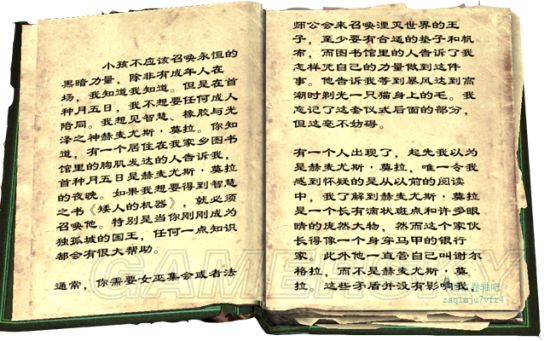 小孩不应该召唤永恒的
黑暗力量，除非有成年人在
场，我知道我知道。但是在首
种月五日，我不想要任何成人
陪同。我想见智慧、橡胶与光
泽之神赫麦尤斯·莫拉。你知
道，有一个居住在我家乡图书
馆里的胸肌发达的人告诉我，
首种月五日是赫麦尤斯·莫拉
的夜晚。如果我想要得到智慧
之书《矮人的机器》，就必须
召唤他。特别是当你刚刚成为
独孤城的国王，任何一点知识
都会有很大帮助。
通常，你需要女巫集会或者法
师公会来召唤湮灭世界的王
子，至少要有合适的垫子和帆
布，而图书馆里的人告诉了我
怎样凭自己的力量做到这件
事。他告诉我等到暴风达到高
潮时剃光一只猫身上的毛。我
忘记了这套仪式后面的部分，
但这毫不妨碍。
有一个人出现了，起先我以为
是赫麦尤斯·莫拉，唯一令我
感到怀疑的是从以前的阅读
中，我了解到赫麦尤斯·莫拉
是一个长有滴状斑点和许多眼
睛的庞然大物，然而这个家伙
长得像一个身穿马甲的银行
家。此外他一直管自己叫谢尔
格拉，而不是赫麦尤斯·莫
拉。这些矛盾并没有影响我，
GAMERSKY